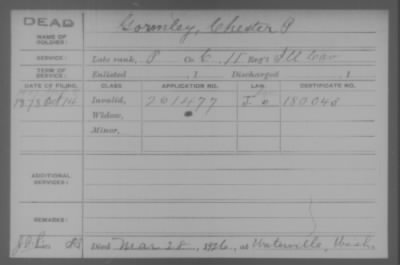 DEAD
NAME OF SOLDIER: Gormley, Chester P
SERVICE: Late rank, P Co C, 11 Reg't Ill Cav
TERM OF SERVICE: Enlisted , 1 Discharged , 1
DATE OF FILING. CLASS. APPLICATION NO. LAW. CERTIFICATE NO.
1878 Oct 14 Invalid, 261477 180043
Widow,
Minor,
ADDITIONAL SERVICES:
REMARKS:
Died Mar 28, 1926, at Waterville, Wash.